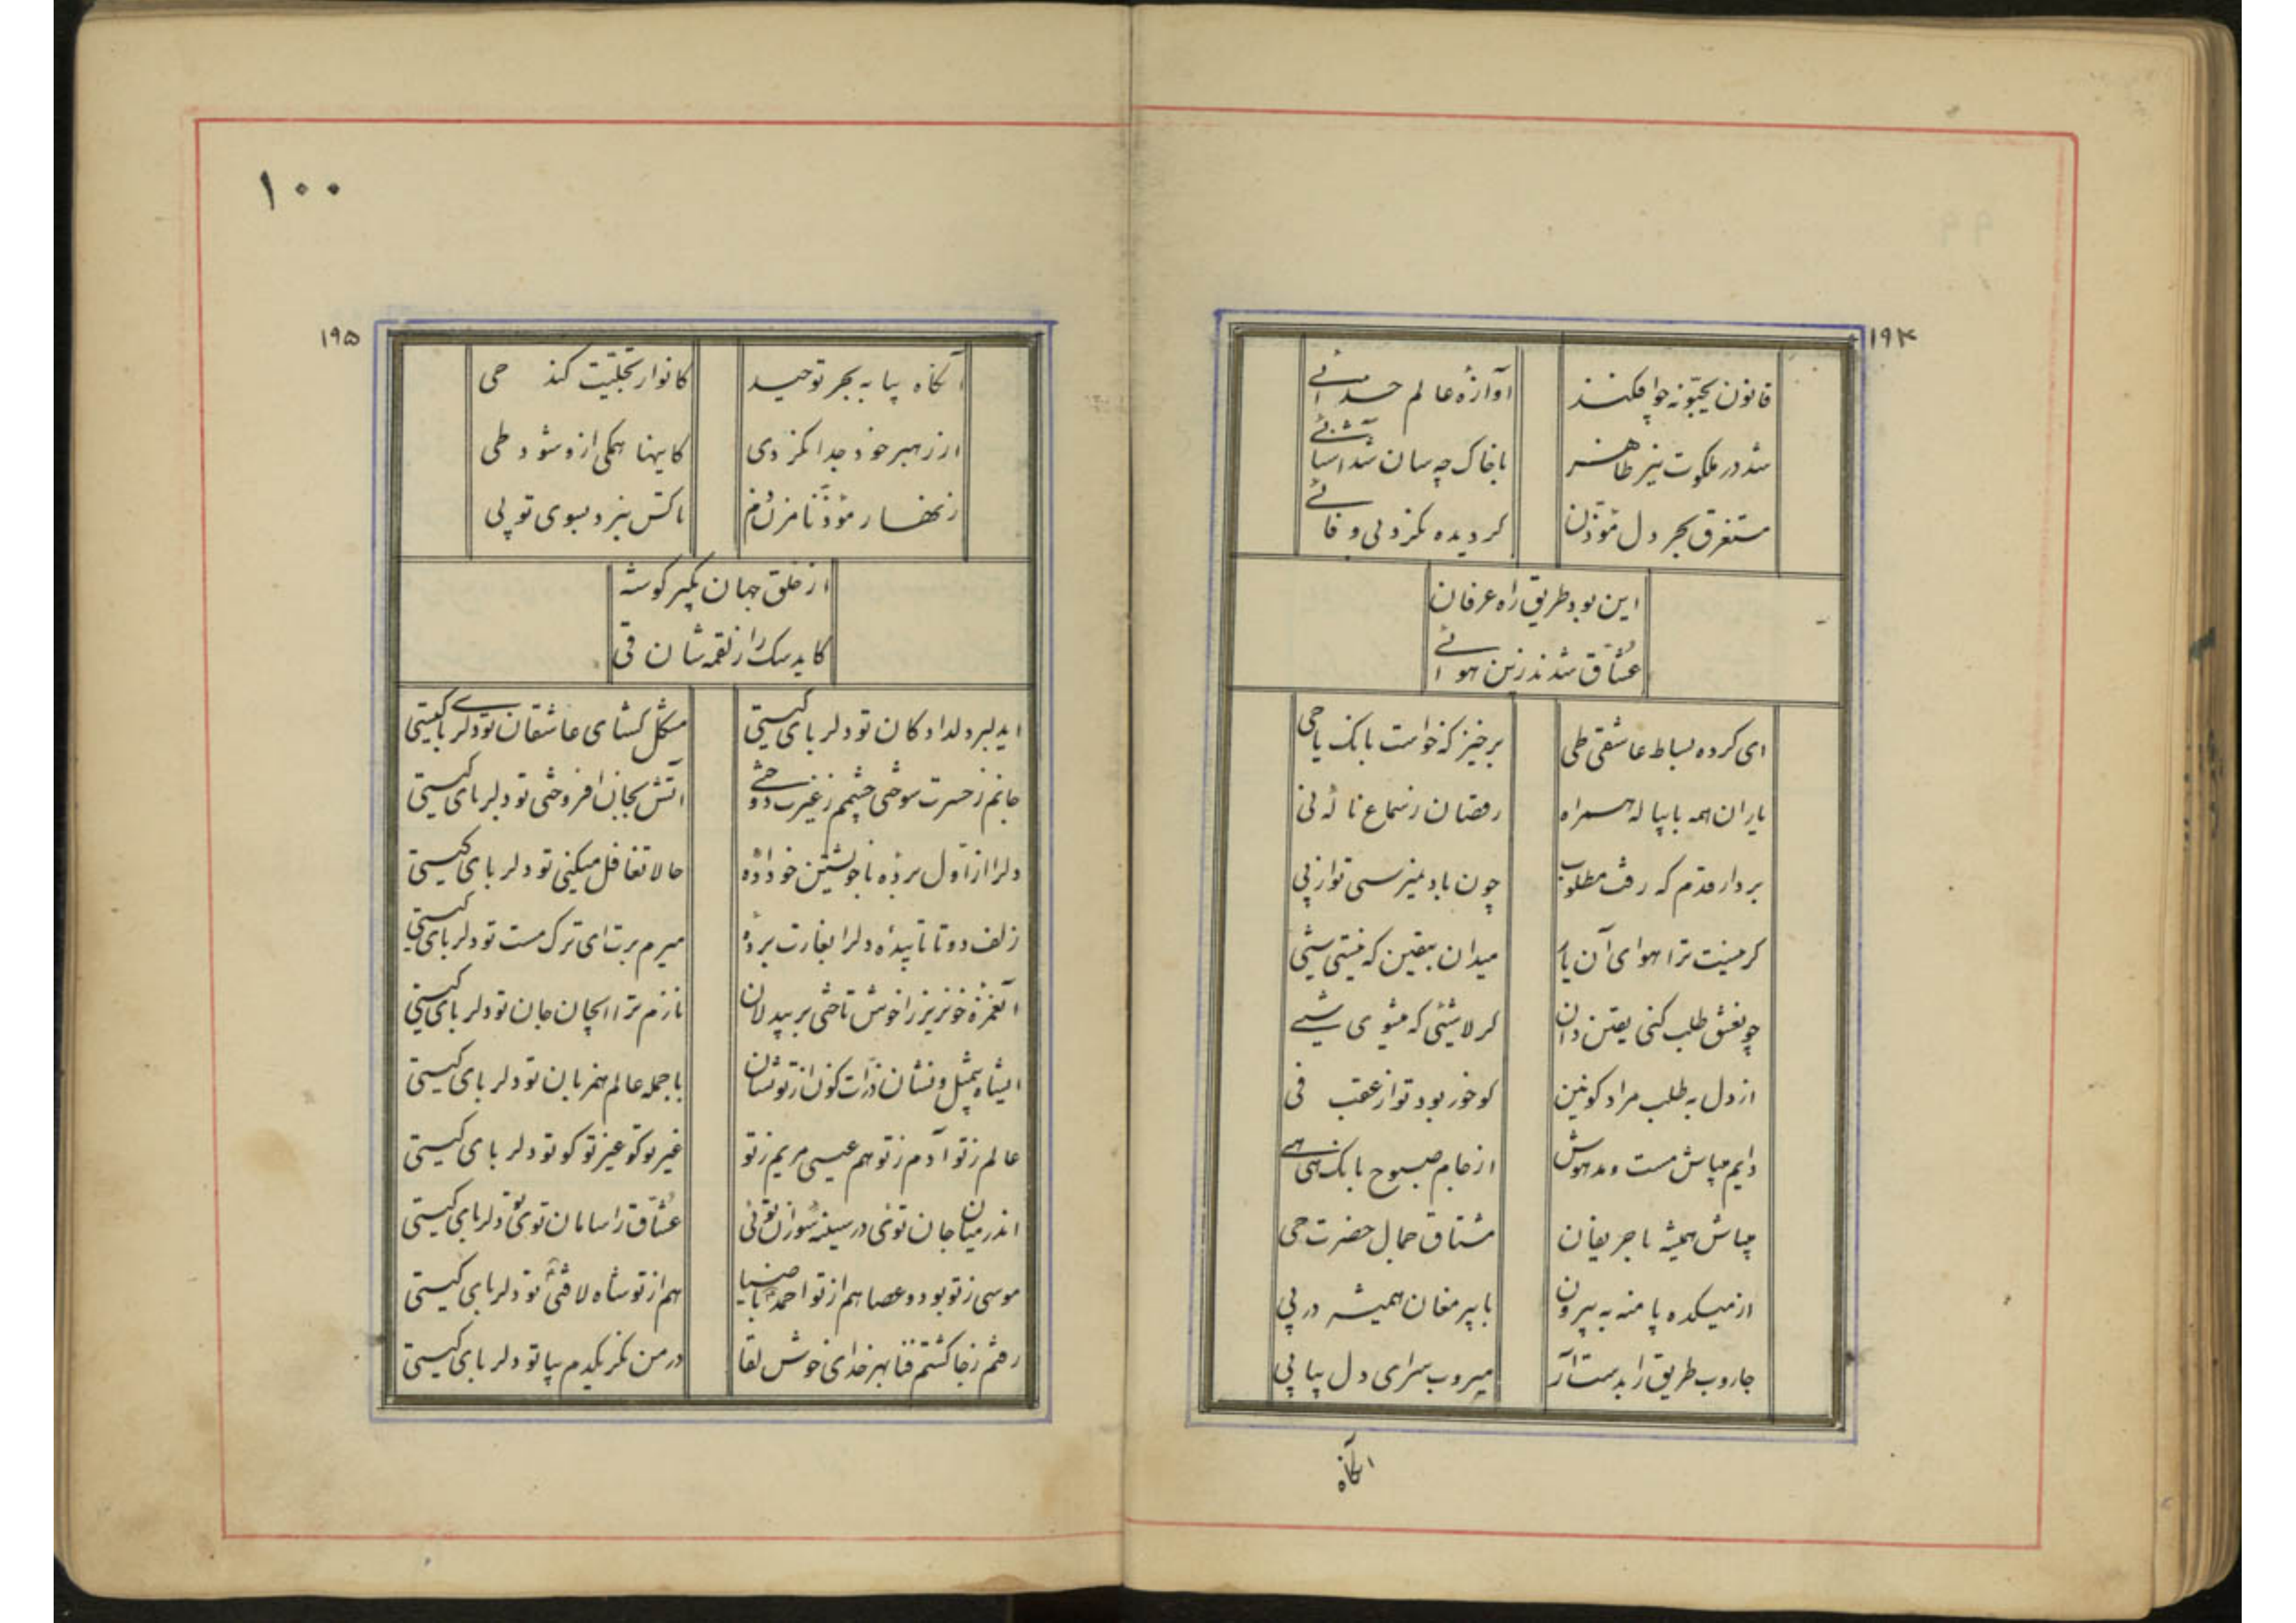 ۱۹۴
قانون یحبونه چو افکند آوازهٔ عالم خدائی
شد در ملکوت نیز ظاهر با خاک چه سان شد آشنائی
مستغرق بحر دل مؤذن کردیده نکرد بی وفائی
این بود طریق راه عرفان
عشاق شدند زین هوائی
ای کرده بساط عاشقی طی برخیز که خواست بانک یا حی
یاران همه با پیاله همراه رقصان ز سماع نالهٔ نی
بردار قدم که رفت مطلوب چون باد نمیرسی تو از پی
کر نیست ترا هوای آن یار میدان بیقین که نیستی شیئی
چو نعشق طلب کنی یقین دان کر لاشئی که میشوی شیئی
از دل به طلب مراد کونین کو خور بود تو از عقب فی
دایم مباش مست و مدهوش از جام صبوح بانک هی هی
میباش همیشه با حریفان مشتاق جمال حضرت حی
از میکده پا منه به بیرون با پیر مغان همیشه در پی
جاروب طریق را بدست آر میروب سرای دل پیاپی
آنکاه
۱۰۰
۱۹۵
آنکاه بیا به بحر توحید کانوار تجلیت کند حی
از رهبر خود جدا نکردی کاینها همکی ازو شود طی
زنهار مؤذنا مزن دم تا کس نبرد بسوی تو پی
از خلق جهان بکیر کوشه
کاید سک را ز لقمه شان قی
ایدلبر دلدادکان تو دلربای کیستی مشکل کشای عاشقان تو دلربای کیستی
جانم ز حسرت سوختی چشمم ز غیرت دوختی آتش بجان افروختی تو دلربای کیستی
دلرا از اول بردهٔ با خویشتن خو دادهٔ حالا تغافل میکنی تو دلربای کیستی
زلف دو تا تابیدهٔ دلرا بغارت بردهٔ میرم برت ای ترک مست تو دلربای کیستی
آنغمزهٔ خونریز را خوش تاختی بر بیدلان نازم ترا ایجان جان تو دلربای کیستی
ایشاه بیمثل و نشان ذرات کون از تو نشان با جمله عالم همزبان تو دلربای کیستی
عالم ز تو آدم ز تو هم عیسی مریم ز تو غیر تو کو غیر تو کو تو دلربای کیستی
اندر میان جان توئی در سینهٔ سوزان توئی عشاق را سامان توئی تو دلربای کیستی
موسی ز تو بود و عصا هم از تو احمد با ضیا هم از تو شاه لافتی تو دلربای کیستی
رفتم ز جا کشتم فنا بهر خدای خوش لقا در من نکر یکدم بیا تو دلربای کیستی